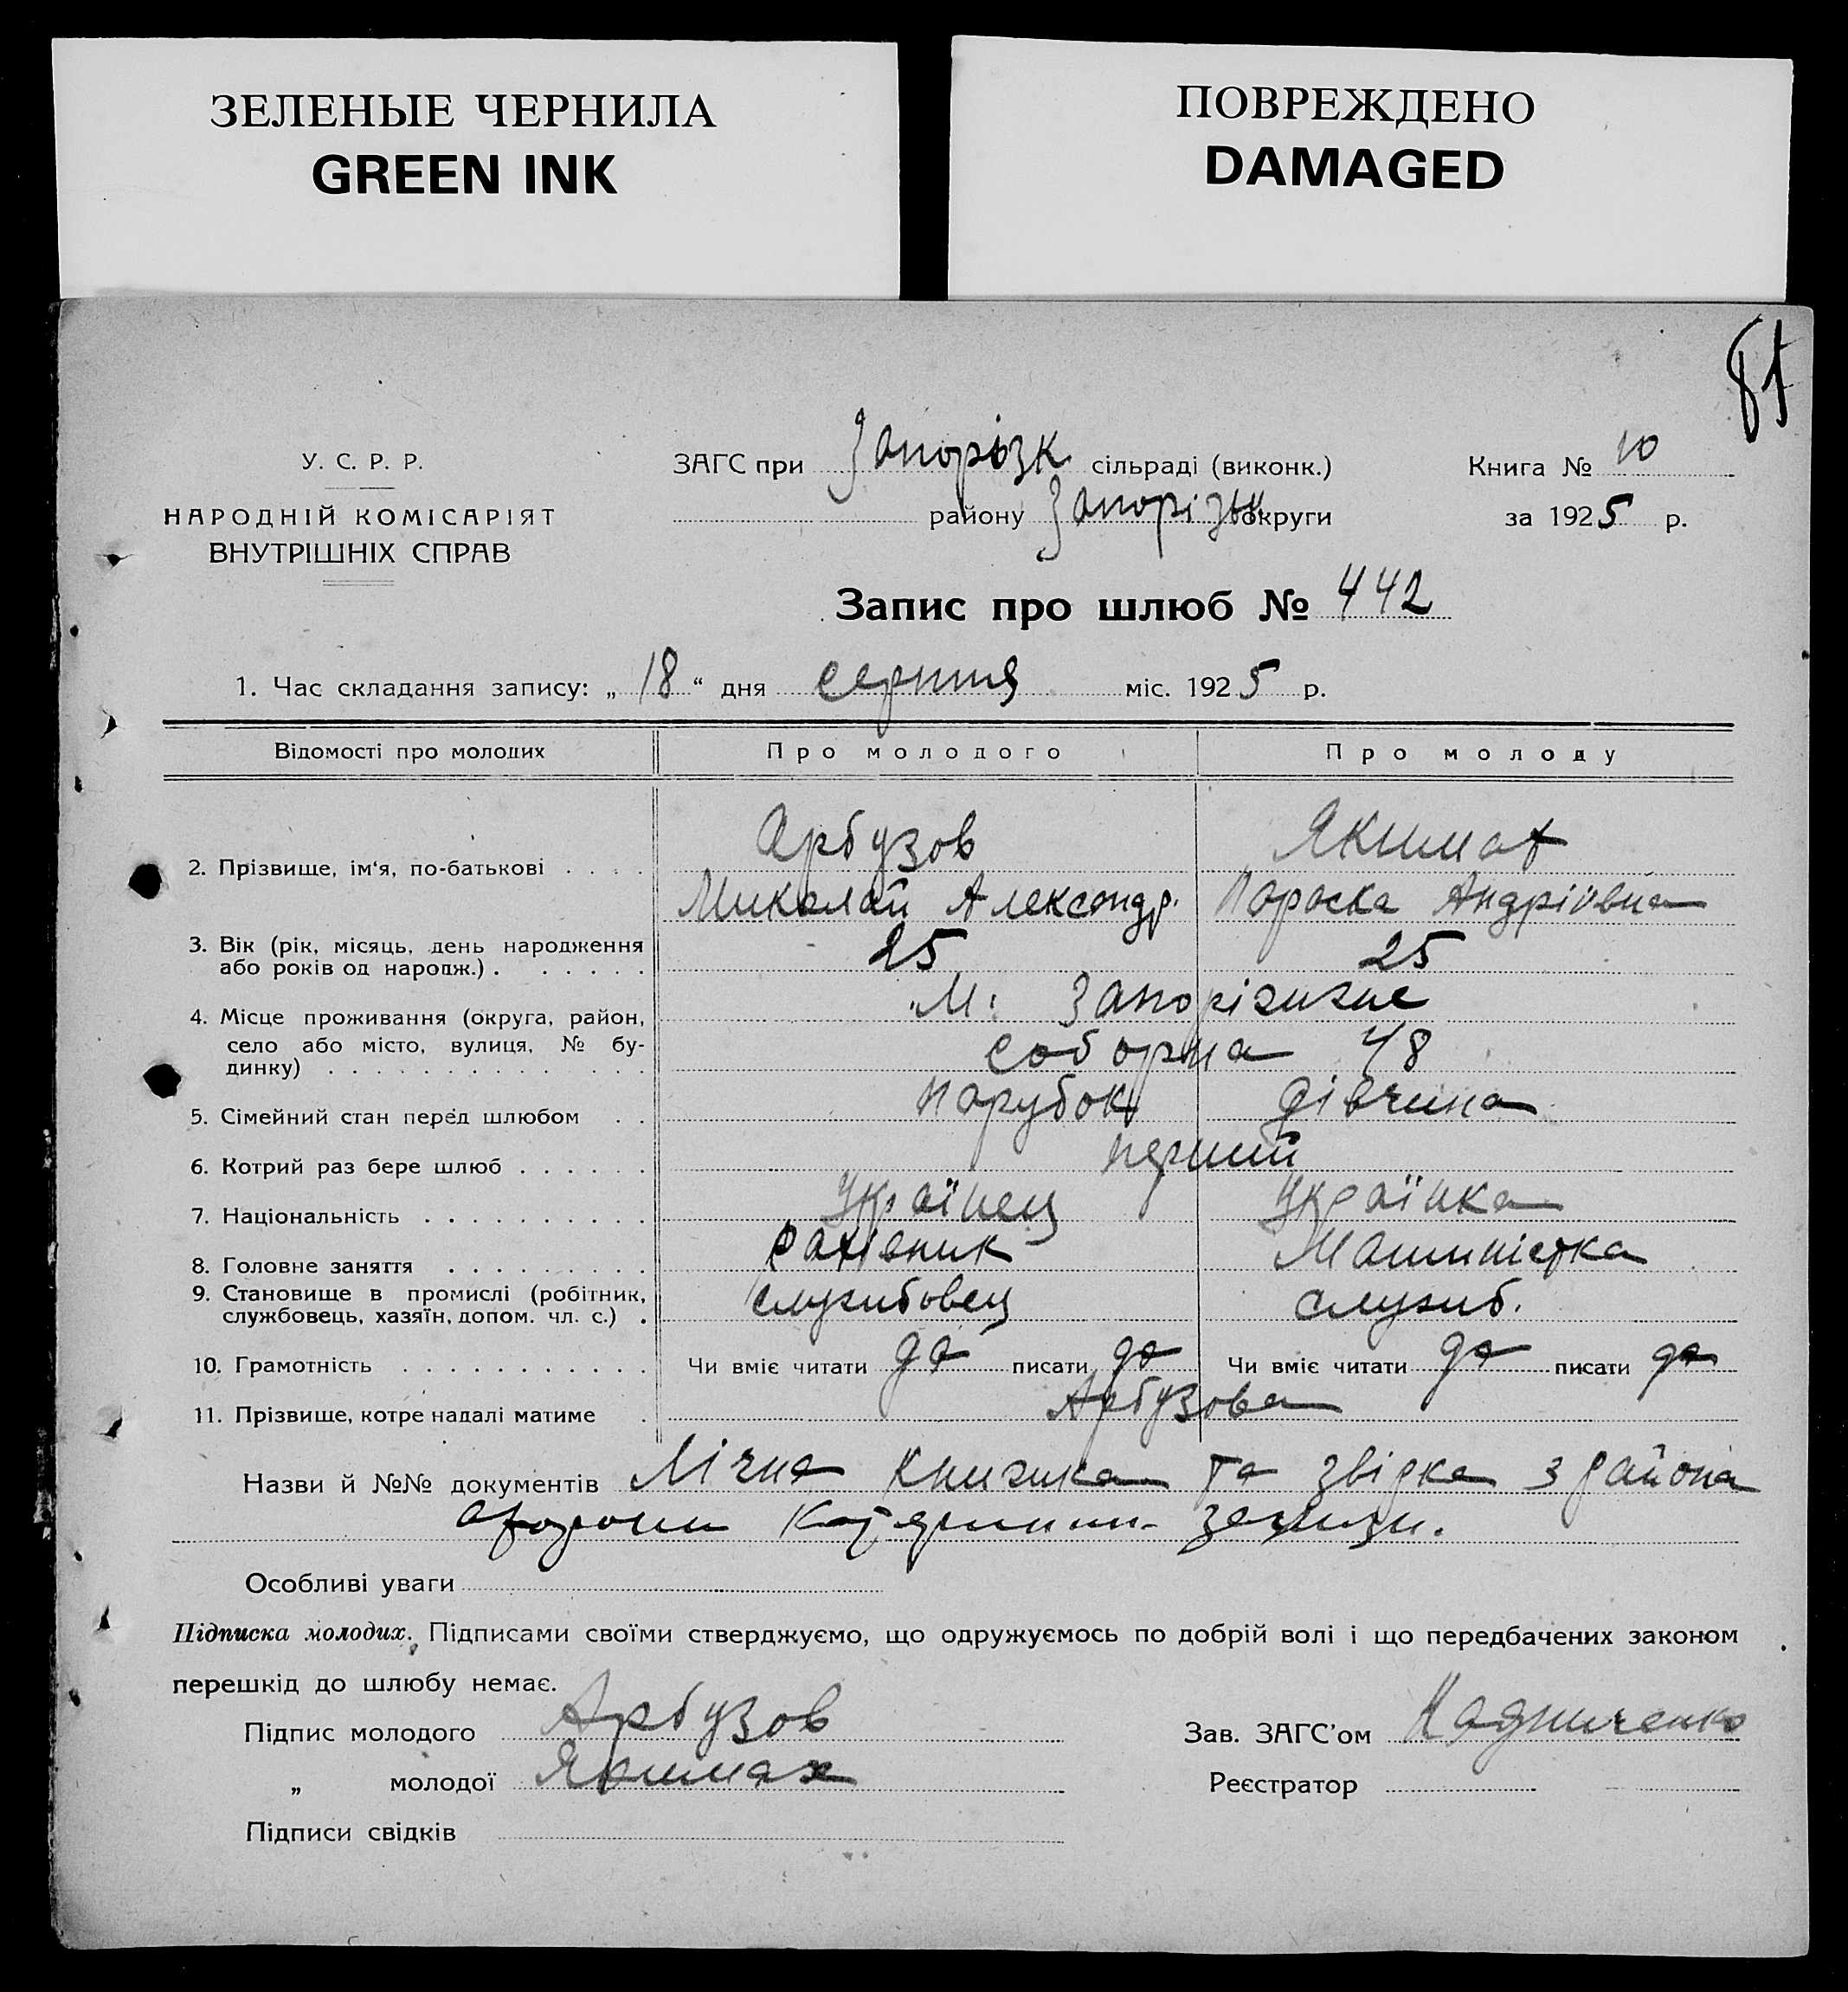 ЗЕЛЕНЫЕ ЧЕРНИЛА
GREEN INK
ПОВРЕЖДЕНО
DAMAGED
81
У. С. Р. Р.
НАРОДНІЙ КОМІСАРІЯТ
ВНУТРІШНІХ СПРАВ
ЗАГС при Запорізк сільраді (виконк.)
району Запорізьк округи
Книга № 10
за 1925 р.
Запис про шлюб № 442
1. Час складання запису: „ 18 “ дня серпня міс. 1925 р.
Відомості про молодих Про молодого Про молоду
2. Прізвище, ім‘я, по-батькові . . . . Арбузов
Миколай Александр. Параска Андріївна
3. Вік (рік, місяць, день народження або років од народж.) . . . . . . 25 25
4. Місце проживання (округа, район, село або місто, вулиця, № будинку) . . . . м. Запоріжжє
Соборна 48
5. Сімейний стан перед шлюбом . . парубок дівчина
6. Котрий раз бере шлюб . . . . . . перший
7. Національність . . . . . . . . . . Українец Українка
8. Головне заняття . . . . . . . . . рахівник Машиністка
9. Становище в промислі (робітник, службовець, хазяїн, допом. чл. с.) . службовец служб.
10. Грамотність . . . . . . . . . . . Чи вміє читати да писати да Чи вміє читати да писати да
11. Прізвище, котре надалі матиме . Арбузова
Назви й №№ документів Лічна книжка та звідка з района
охорони
Особливі уваги
Підписка молодих. Підписами своїми стверджуємо, що одружуємось по добрій волі і що передбачених законом
перешкід до шлюбу немає.
Підпис молодого Арбузов
„ молодої Якимах
Підписи свідків
Зав. ЗАГС’ом
Реєстратор